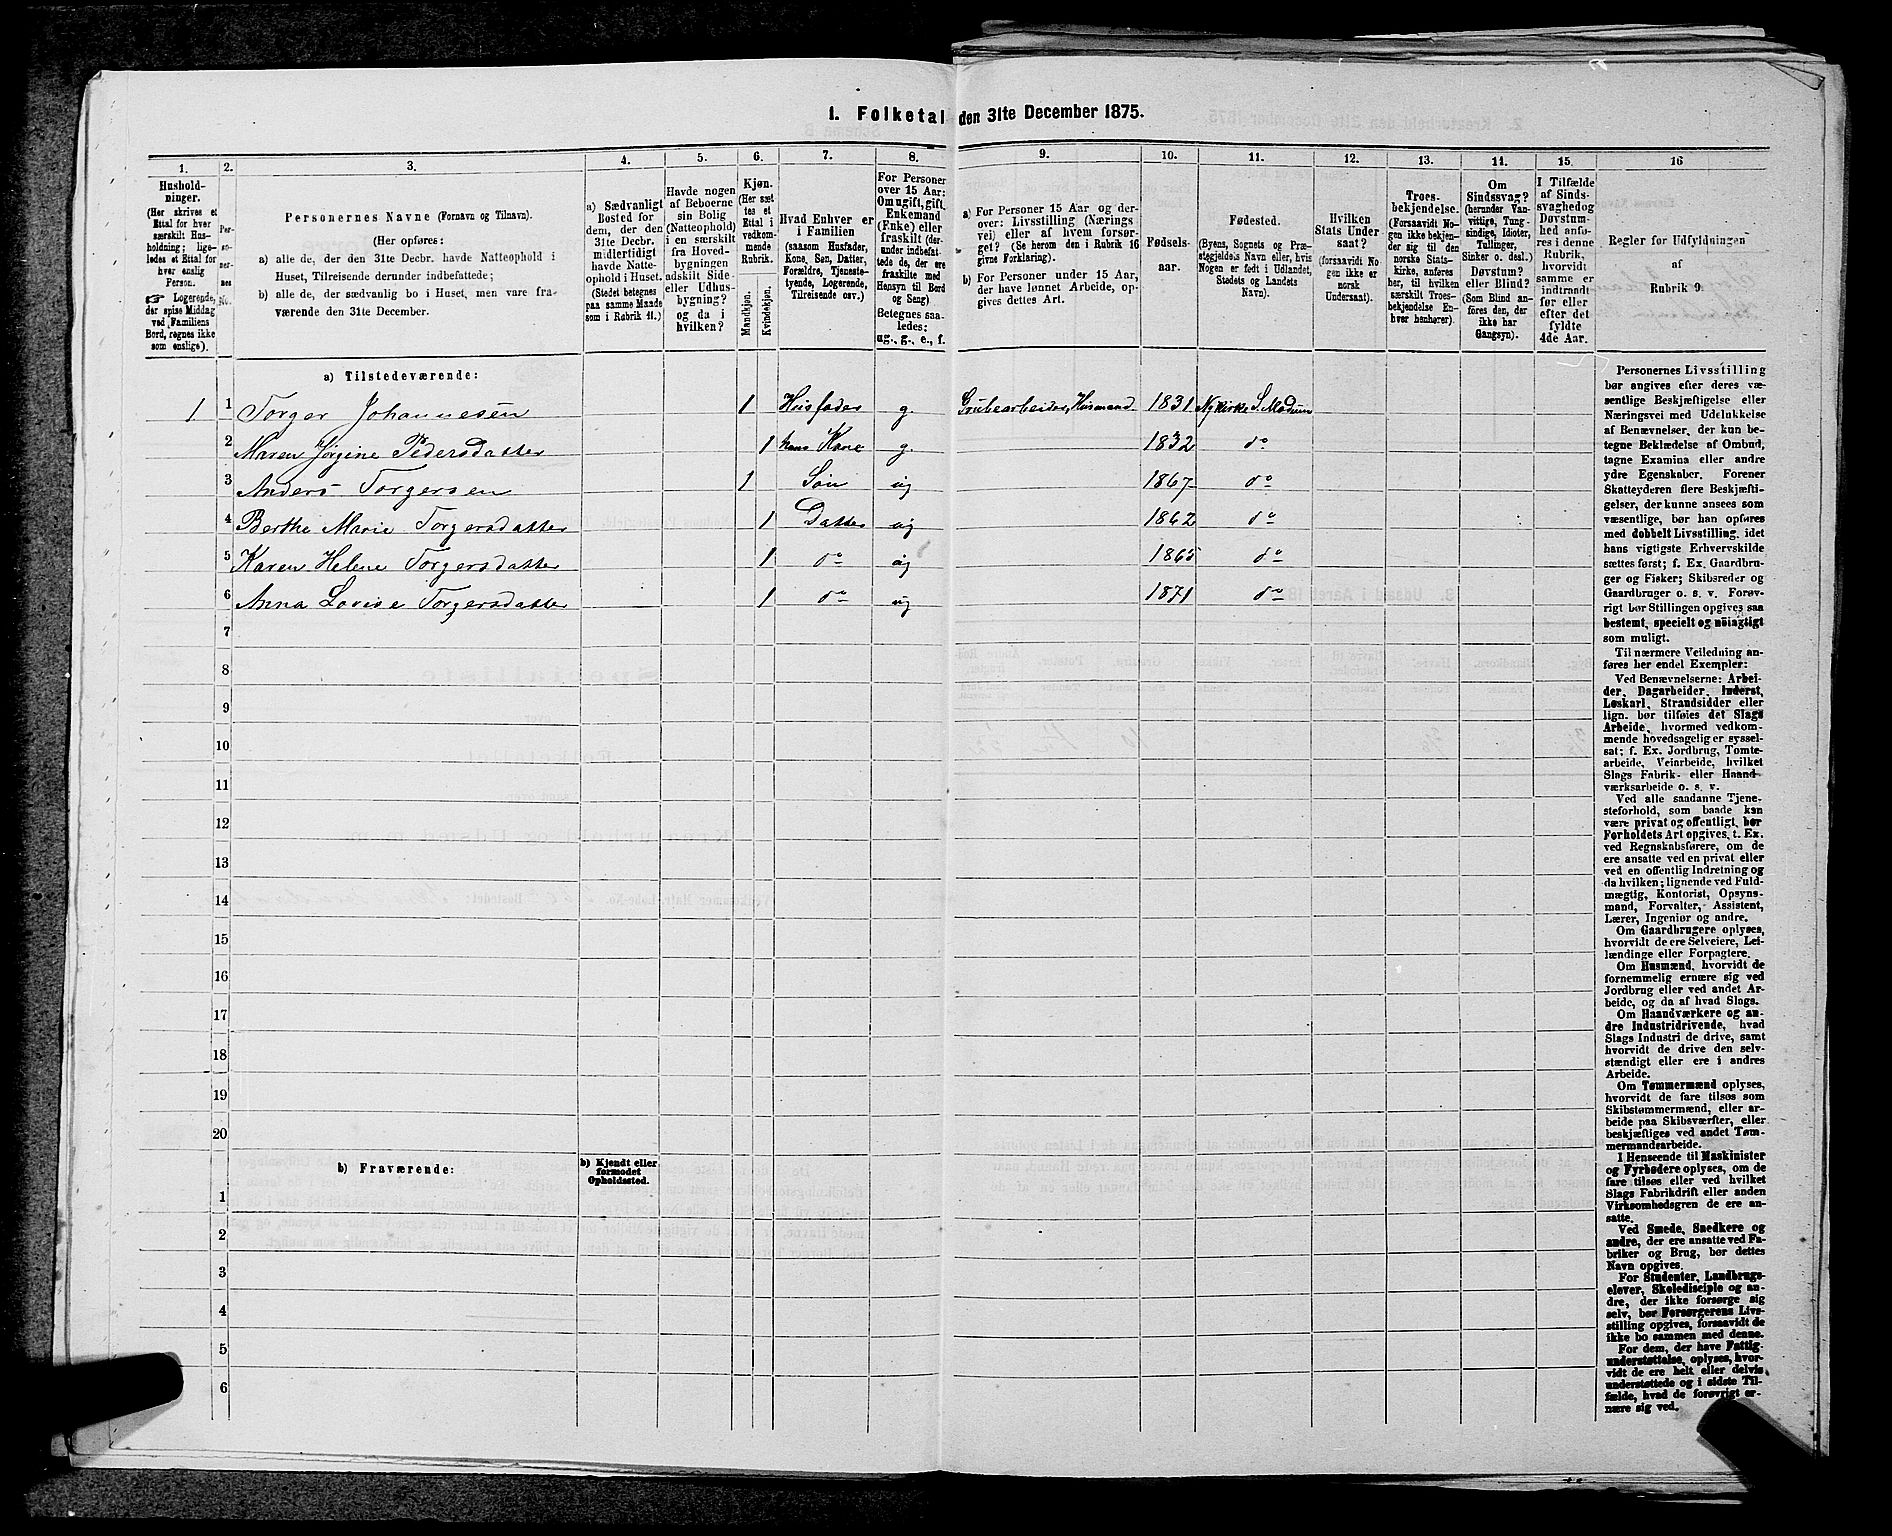 1. Folketal den 31te December 1875.
1. 2. 3. 4. 5. 6. 7. 8. 9. 10. 11. 12. 13. 14. 15. 16
Hushold-
ninger.
(Her skrives et
Ettal for hver
særskilt Hus-
holdning; lige-
ledes et Ettal for
hver enslig
Person.
☞ Logerende,
der spise Middag
ved Familiens
Bord, regnes ikke
som enslige).
Per-
so-
ner-
nes
No.
Personernes Navne (Fornavn og Tilnavn).
(Her opføres:
a) alle de, der den 31te Decbr. havde Natteophold i
Huset, Tilreisende derunder indbefattede;
b) alle de, der sædvanlig bo i Huset, men vare fra-
værende den 31te December.
a) Sædvanligt
Bosted for
dem, der den
31te Decbr.
midlertidigt
havde Natte-
ophold i Huset.
(Stedet betegnes
paa samme Maade
som i Rubrik 11.)
Havde nogen
af Beboerne
sin Bolig
(Natteophold)
i en særskilt
fra Hoved-
bygningen
adskilt Side-
eller Udhus-
bygning?
og da i
hvilken?
Kjøn.
(Her sæt-
tes et
Ettal i
vedkom-
mende
Rubrik.
Mandkjøn.
Kvindekjøn.
Hvad Enhver er
i Familien
(saasom Husfader,
Kone, Søn, Datter,
Forældre, Tjeneste-
tyende, Logerende,
Tilreisende osv.)
For Personer
over 15 Aar:
Om ugift, gift,
Enkemand
(Enke) eller
fraskilt (der-
under indbefat-
tede de, der ere
fraskilte med
Hensyn til Bord
og Seng)
Betegnes saa-
ledes:
ug., g., e., f.
a) For Personer 15 Aar og der-
over: Livsstilling (Nærings-
vei) eller af hvem forsør-
get? (Se herom den i Rubrik 16
givne Forklaring).
b) For Personer under 15 Aar,
der have lønnet Arbeide, op-
gives dettes Art.
Fødsels-
aar.
Fødested.
(Byens, Sognets og Præ-
stegjeldets Navn, eller, hvis
Nogen er født i Udlandet,
Stedets og Landets
Navn).
Hvilken
Stats Under-
saat?
(forsaavidt No-
gen ikke er
norsk
Undersaat).
Troes-
bekjendelse.
(Forsaavidt No-
gen ikke bekjen-
der sig til den
norske Stats-
kirke, anføres
her, til hvilken
særskilt Troes-
bekjendelse En-
hver henhører).
Om
Sindssvag?
(herunder Van-
vittige, Tung-
sindige, Idioter,
Tullinger,
Sinker o. desl.)
Døvstum?
eller Blind?
(Som Blind an-
føres den, der
ikke har
Gangsyn).
I Tilfælde
af Sinds-
svaghed og
Døvstum-
hed anfø-
res i denne
Rubrik,
hvorvidt
samme er
indtraadt
før eller
efter det
fyldte
4de Aar.
Regler for Udfyldningen
af
Rubrik 9.
a) Tilstedeværende:
1 1 Torger Johannesen 1 Husfader g. Grubearbeider, Husmand 1831 Nykirke S. Modum
2 Maren Jørgine Pedersdatter 1 hans Kone g. 1832 do
3 Anders Torgersen 1 Søn ug 1867 do
4 Berthe Marie Torgersdatter 1 Datter ug 1862 do
5 Karen Helene Torgersdatter 1 do ug 1865 do
6 Anna Lovise Torgersdatter 1 do ug 1871 do
7
8
9
10
11
12
13
14
15
16
17
18
19
20
b) Fraværende:
b) Kjendt eller
formodet
Opholdssted.
1
2
3
4
5
6
Personernes Livsstilling
bør angives efter deres væ-
sentlige Beskjæftigelse eller
Næringsvei med Udelukkelse
af Benævnelser, der kun be-
tegne Beklædelse af Ombud,
tagne Examina eller andre
ydre Egenskaber. Forener
Skatteyderen flere Beskjæfti-
gelser, der kunne ansees som
væsentlige, bør han opføres
med dobbelt Livsstilling, idet
hans vigtigste Erhvervskilde
sættes først; f. Ex. Gaardbru-
ger og Fisker; Skibsreder og
Gaardbruger o. s. v. Forøv-
rigt bør Stillingen opgives saa
bestemt, specielt og nøiagtigt
som muligt.
Til nærmere Veiledning an-
føres her endel Exempler:
Ved Benævnelserne: Arbei-
der, Dagarbeider, Inderst,
Løskarl, Strandsidder eller
lign. bør tilføies det Slags
Arbeide, hvormed vedkom-
mende hovedsagelig er syssel-
sat; f. Ex. Jordbrug, Tomte-
arbeide, Veiarbeide, hvilket
Slags Fabrik- eller Haand-
værksarbeide o. s. v.
Ved alle saadanne Tjene-
steforhold, som baade kan
være privat og offentligt, bør
Forholdets Art opgives, t. Ex.
ved Regnskabsførere, om de
ere ansatte ved en privat eller
ved en offentlig Indretning og
da hvilken; lignende ved Fuld-
mægtig, Kontorist, Opsyns-
mand, Forvalter, Assistent,
Lærer, Ingeniør og andre.
Om Gaardbrugere oplyses,
hvorvidt de ere Selveiere, Lei-
lændinge eller Forpagtere.
Om Husmænd, hvorvidt de
fornemmelig ernære sig ved
Jordbrug eller ved andet Ar-
beide, og da af hvad Slags.
Om Haandværkere og an-
dre Industridrivende, hvad
Slags Industri de drive, samt
hvorvidt de drive den selv-
stændigt eller ere i andres
Arbeide.
Om Tømmermænd oplyses,
hvorvidt de fare tilsøs som
Skibstømmermænd, eller ar-
beide paa Skibsværfter, eller
beskjæftiges ved andet Tøm-
mermandsarbeide.
I Henseende til Maskinister
og Fyrbødere oplyses, om de
fare tilsøs eller ved hvilket
Slags Fabrikdrift eller anden
Virksomhedsgren de ere an-
satte.
Ved Smede, Snedkere og
andre, der ere ansatte ved Fa-
briker og Brug, bør dettes
Navn opgives.
For Studenter, Landbrugs-
elever, Skoledisciple og an-
dre, der ikke forsørge sig
selv, bør Forsørgerens Livs-
stilling opgives, forsaavidt de
ikke bo sammen med denne.
For dem, der have Fattig-
understøttelse, oplyses, hvor-
vidt de ere helt eller delvis
understøttede og i sidste Til-
fælde, hvad de forøvrigt er-
nære sig ved.